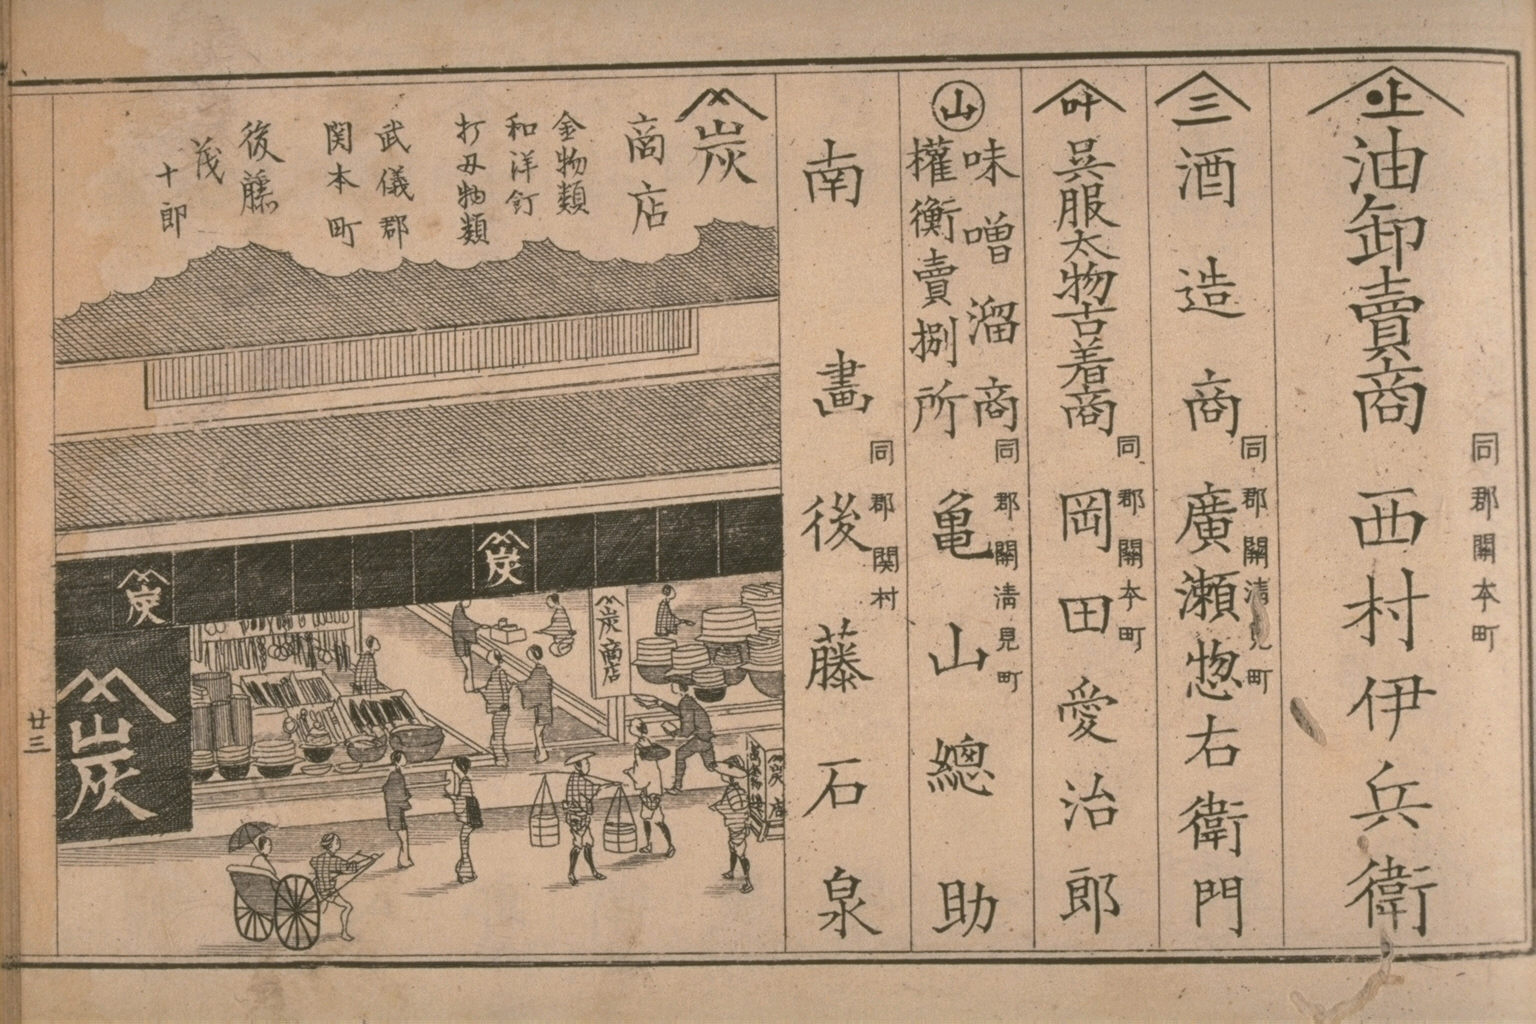 同郡關本町
上
油卸賣商 西村伊兵衛
同郡關清見町
三
酒造商 廣瀬惣右衛門
同郡關本町
叶
呉服太物古着商 岡田愛治郎
同郡關清見町
山
味噌溜商
權衡賣捌所
亀山總助
同郡関村
南畫 後藤石泉
炭
商店
金物類
和洋釘
打刃物類
武儀郡
関本町
後藤
茂十郎
炭
炭
炭商店
炭
廿三